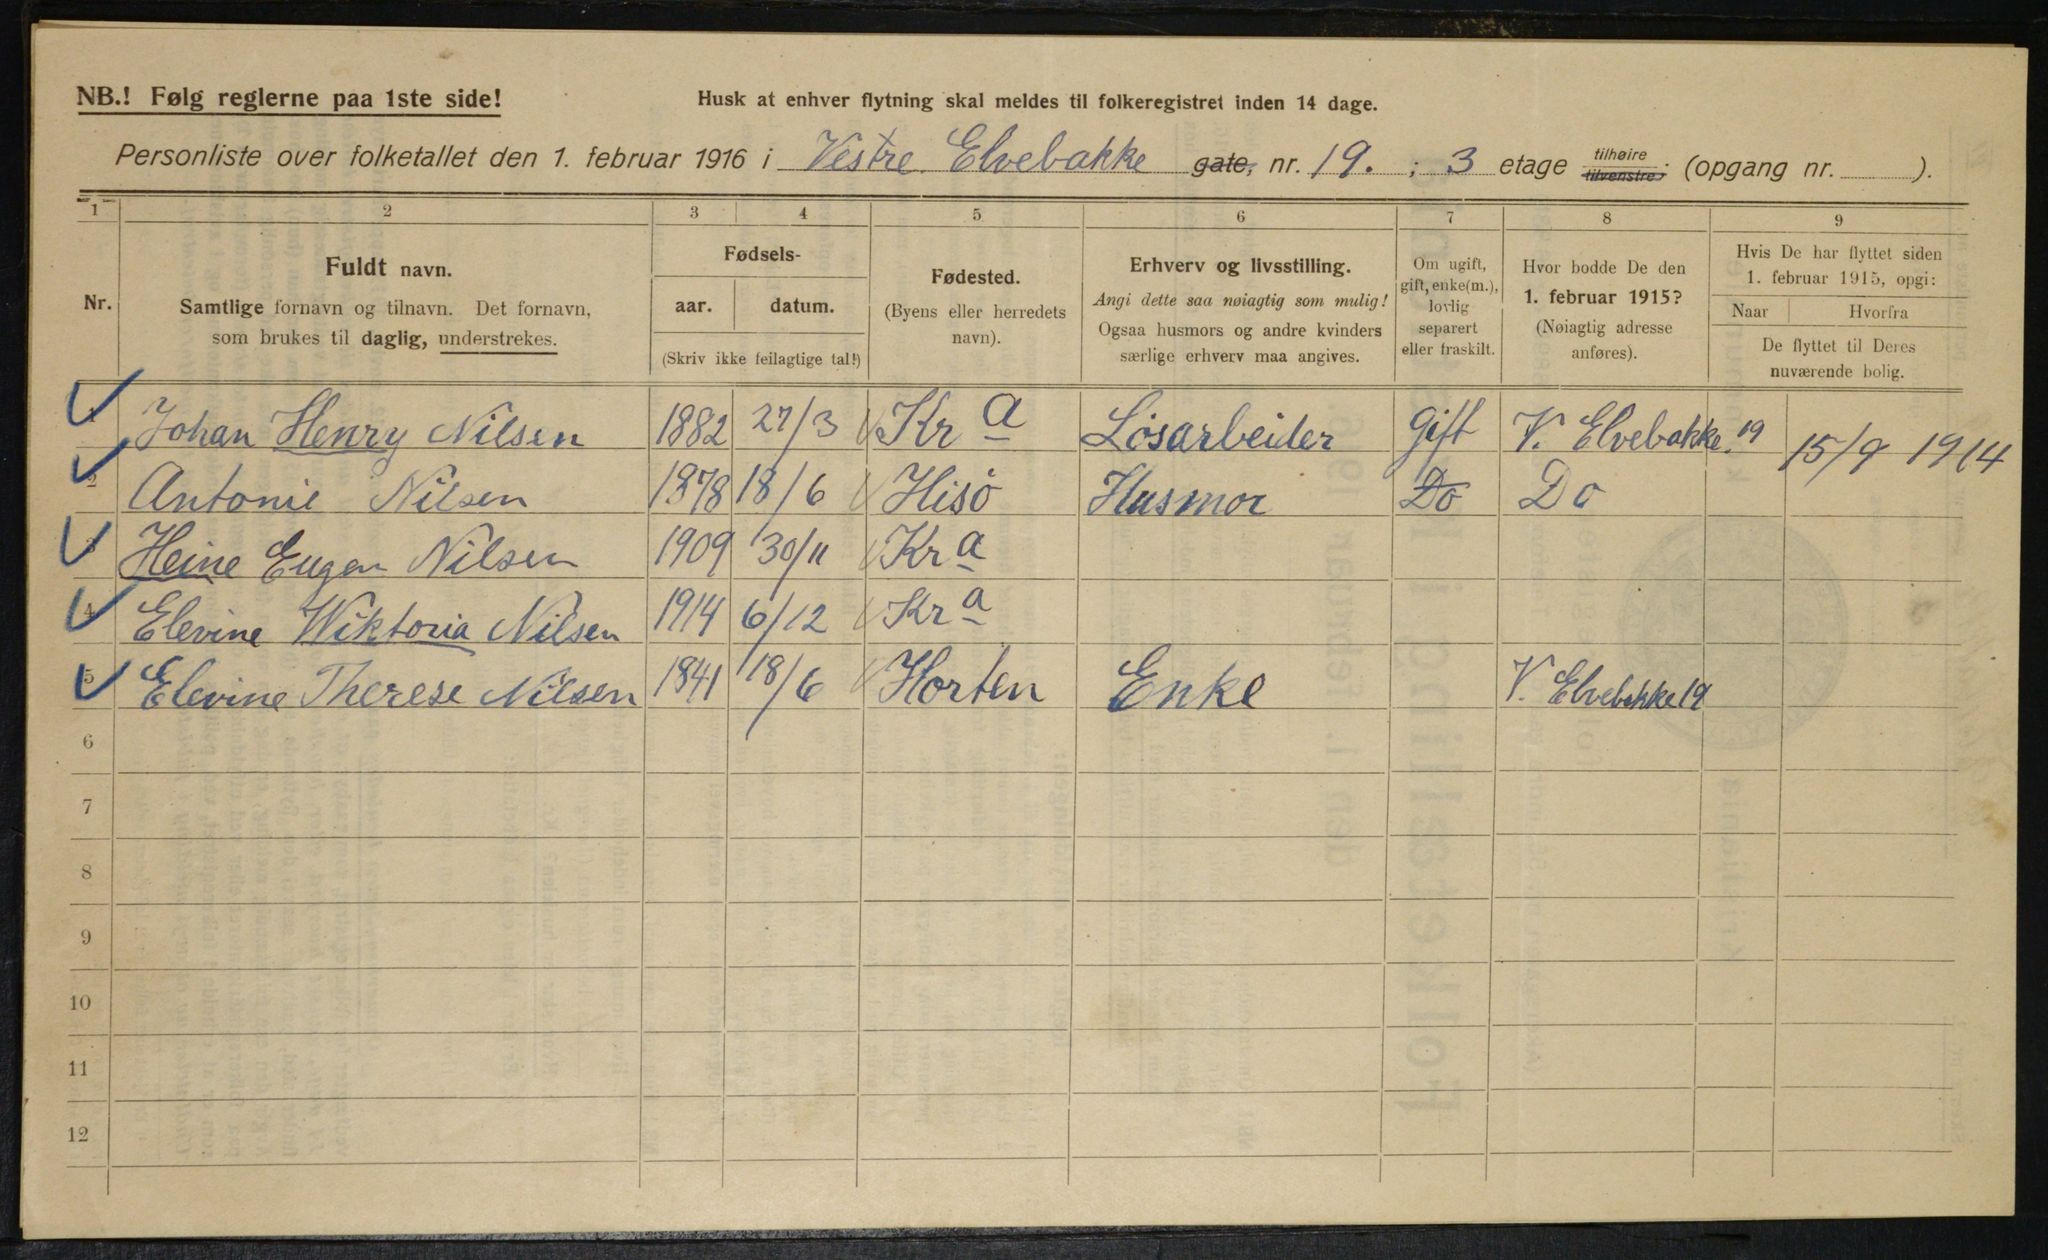 NB.! Følg reglerne paa 1ste side!
Husk at enhver flytning skal meldes til folkeregistret inden 14 dage.
Personliste over folketallet den 1. februar 1916 i Vestre Elvebakke gate, nr. 19. ; 3 etage tilhøire tilvenstre; (opgang nr. ).
1 2 3 4 5 6 7 8 9
Nr.
Fuldt navn.
Samtlige fornavn og tilnavn. Det fornavn,
som brukes til daglig, understrekes.
Fødsels-
aar. datum.
(Skriv ikke feilagtige tal!)
Fødested.
(Byens eller herredets
navn).
Erhverv og livsstilling.
Angi dette saa nøiagtig som mulig!
Ogsaa husmors og andre kvinders
særlige erhverv maa angives.
Om ugift,
gift, enke(m.),
lovlig
separert
eller fraskilt.
Hvor bodde De den
1. februar 1915?
(Nøiagtig adresse
anføres).
Hvis De har flyttet siden
1. februar 1915, opgi:
Naar Hvorfra
De flyttet til Deres
nuværende bolig.
1 Johan Henry Nilsen 1882 27/3 Kr a Løsarbeider Gift V. Elvebakke 19 15/9 1914
2 Antonie Nilsen 1878 18/6 Hisö Husmor Do Do
3 Heine Eugen Nilsen 1909 30/11 Kr a
4 Elevine Wiktoria Nilsen 1914 6/12 Kr a
5 Elevine Therese Nilsen 1841 18/6 Horten Enke V. Elvebakke 19
6
7
8
9
10
11
12